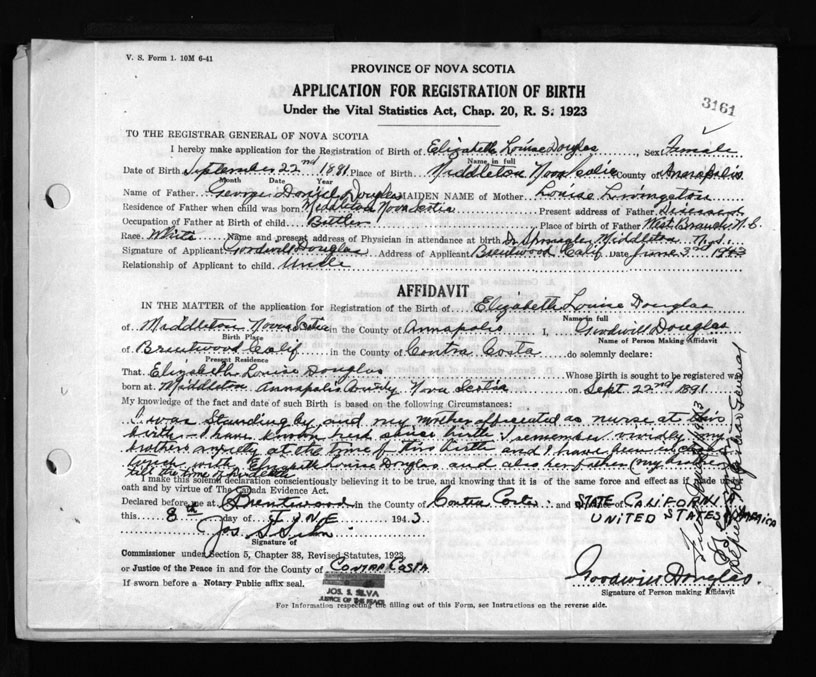 V. S. Form 1. 10M 6-41
PROVINCE OF NOVA SCOTIA
APPLICATION FOR REGISTRATION OF BIRTH
Under the Vital Statistics Act, Chap. 20, R. S. 1923
3161
TO THE REGISTRAR GENERAL OF NOVA SCOTIA
I hereby make application for the Registration of Birth of Elizabeth Louise Douglas, Sex Female
Name in full
Date of Birth September 22nd 1891 Place of Birth Middleton Nova Scotia County of Annapolis
Month Date Year
Name of Father George Douglas MAIDEN NAME of Mother Louise Livingston
Residence of Father when child was born Middleton Nova Scotia Present address of Father Deceased
Occupation of Father at Birth of child Place of birth of Father West
Race White Name and present address of Physician in attendance at birth Dr Middleton
Signature of Applicant Goodwill Douglas Address of Applicant Brentwood Calif Date June 3rd 1943
Relationship of Applicant to child Uncle
AFFIDAVIT
IN THE MATTER of the application for Registration of the Birth of Elizabeth Louise Douglas
Name in full
of Middleton Nova Scotia in the County of Annapolis I, Goodwill Douglas
Birth Place Name of Person Making Affidavit
of Brentwood Calif in the County of Contra Costa do solemnly declare:
Present Residence
That Elizabeth Louise Douglas Whose Birth is sought to be registered was
born at Middleton Annapolis County Nova Scotia on Sept 22nd 1891
My knowledge of the fact and date of such Birth is based on the following Circumstances:
I was standing by and my mother officiated as nurse at this
birth - I have known her since birth I remember vividly my
brothers anxiety at the time of this birth and I have been in close
touch with Elizabeth Louise Douglas and also her father (my brother)
till the time of his death
I make this solemn declaration conscientiously believing it to be true, and knowing that it is of the same force and effect as if made under
oath and by virtue of The Canada Evidence Act.
Declared before me at Brentwood in the County of Contra Costa and STATE of CALIFORNIA
this 8th day of JUNE 1943 UNITED STATES OF AMERICA
Jos. S. Silva
Signature of
Commissioner under Section 5, Chapter 38, Revised Statutes, 1923
or Justice of the Peace in and for the County of CONTRA COSTA
If sworn before a Notary Public affix seal.
JOS. S. SILVA
JUSTICE OF THE PEACE
Goodwill Douglas.
Signature of Person making Affidavit
For Information respecting the filling out of this Form, see Instructions on the reverse side.
Deputy Registrar General